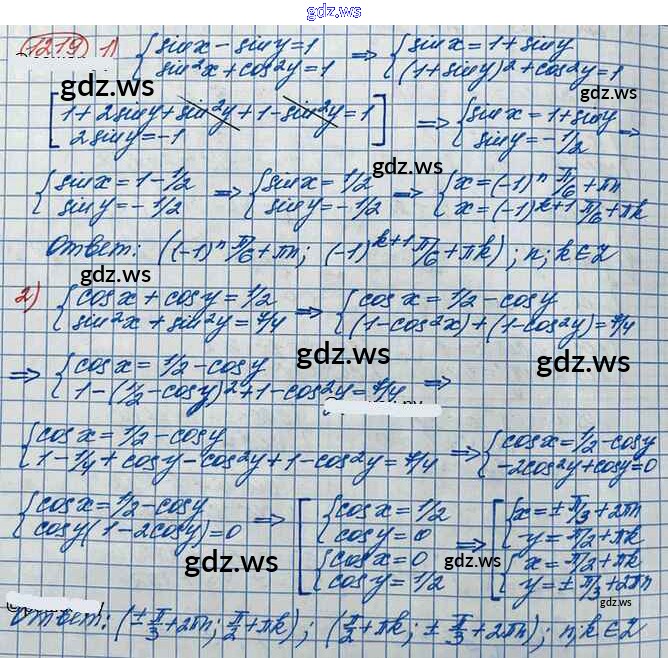 gdz.ws
1219 1) { sin x - sin y = 1 ; sin²x + cos²y = 1 => { sin x = 1 + sin y ; (1 + sin y)² + cos²y = 1
[ 1 + 2 sin y + sin²y + 1 - sin²y = 1 ; 2 sin y = -1 ] => { sin x = 1 + sin y ; sin y = -1/2 =>
gdz.ws
gdz.ws
{ sin x = 1 - 1/2 ; sin y = -1/2 => { sin x = 1/2 ; sin y = -1/2 => { x = (-1)ⁿ π/6 + πn ; x = (-1)ᵏ⁺¹ π/6 + πk
Ответ: ((-1)ⁿ π/6 + πn; (-1)ᵏ⁺¹ π/6 + πk); n; k ∈ Z
gdz.ws
2) { cos x + cos y = 1/2 ; sin²x + sin²y = 7/4 => { cos x = 1/2 - cos y ; (1 - cos²x) + (1 - cos²y) = 7/4
gdz.ws
gdz.ws
=> { cos x = 1/2 - cos y ; 1 - (1/2 - cos y)² + 1 - cos²y = 7/4 =>
{ cos x = 1/2 - cos y ; 1 - 1/4 + cos y - cos²y + 1 - cos²y = 7/4 => { cos x = 1/2 - cos y ; -2cos²y + cos y = 0
{ cos x = 1/2 - cos y ; cos y (1 - 2cos y) = 0 => [ { cos x = 1/2 ; cos y = 0 ; { cos x = 0 ; cos y = 1/2 => [ { x = ± π/3 + 2πn ; y = π/2 + πk ; { x = π/2 + πk ; y = ± π/3 + 2πn
gdz.ws
gdz.ws
gdz.ws
Ответ: (± π/3 + 2πn; π/2 + πk); (π/2 + πk; ± π/3 + 2πn); n; k ∈ Z